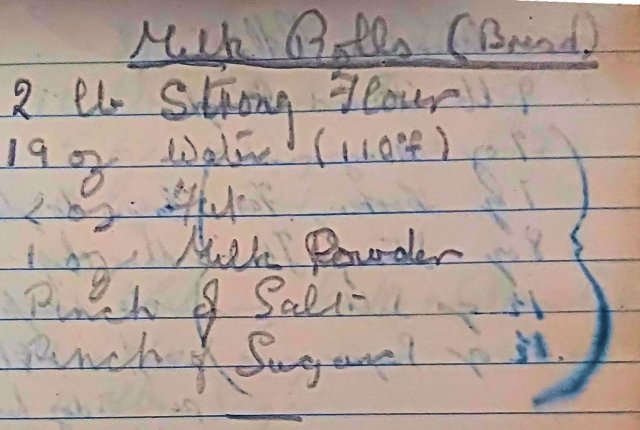 Milk Rolls (Bread)
2 lb Strong Flour
19 oz Water (110°f)
2 oz
1 oz Milk Powder
Pinch of Salt
Pinch of Sugar